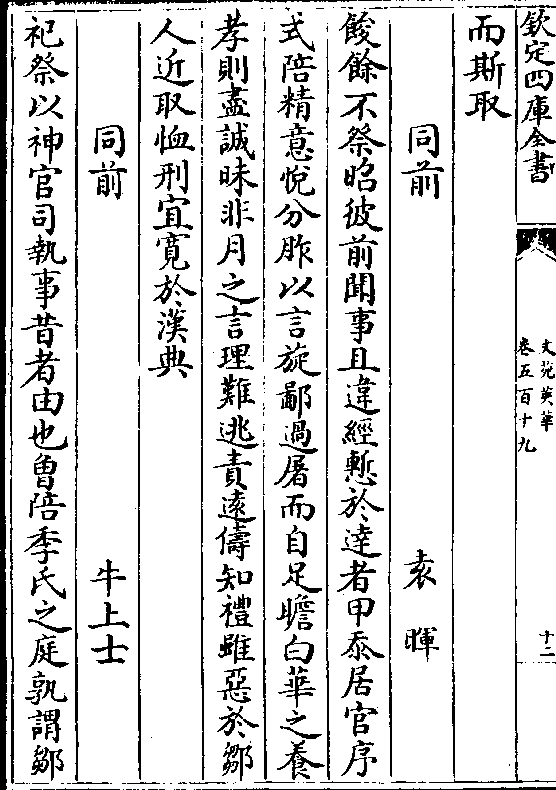 欽定四庫全書
文苑英華
卷五百十九
十二
而斯取
同前 袁暉
餕餘不祭昭彼前聞事且違經慙於達者甲忝居官序
式陪精意悅分胙以言旋鄙過屠而自足瞻白華之養
孝則盡誠昧非月之言理難逃責遠儔知禮雖惡於鄒
人近取恤刑宜寛於漢典
同前 牛上士
祀祭以神官司執事昔者由也曾陪季氏之庭孰謂鄒